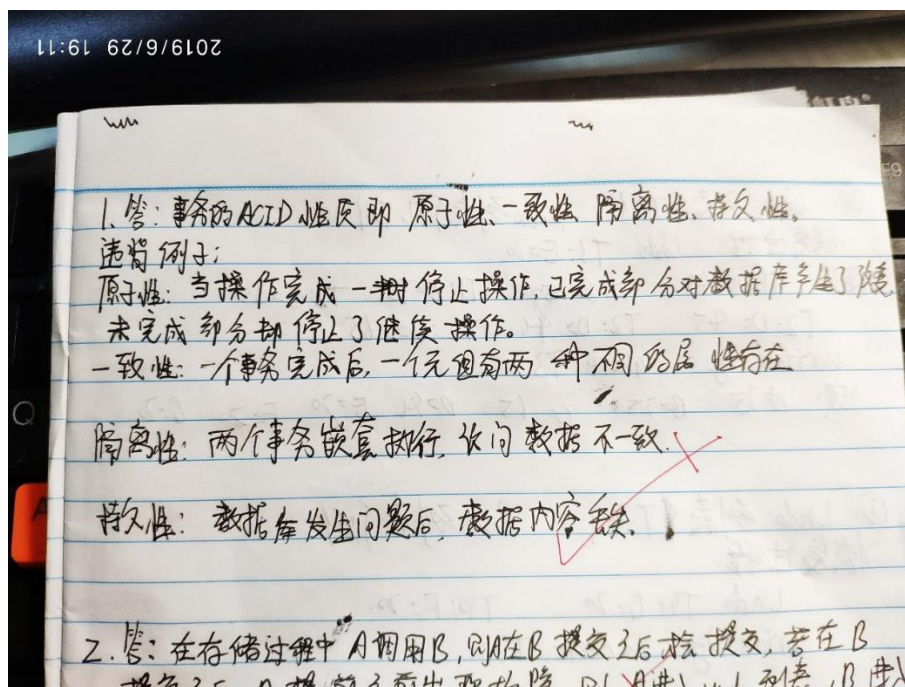 2019/6/29 19:11
1. 答：事务的ACID性质即 原子性、一致性 隔离性、持久性。
违背例子：
原子性：当操作完成一半时停止操作，已完成部分对数据库产生了
未完成部分却停止了继续操作。
一致性：一个事务完成后，一个元组有两种不同的属性存在
隔离性：两个事务嵌套执行，访问数据不一致.
持久性：数据库发生问题后，数据内容丢失.
2. 答：在存储过程中A调用B，则A在B提交之后 提交，若在B